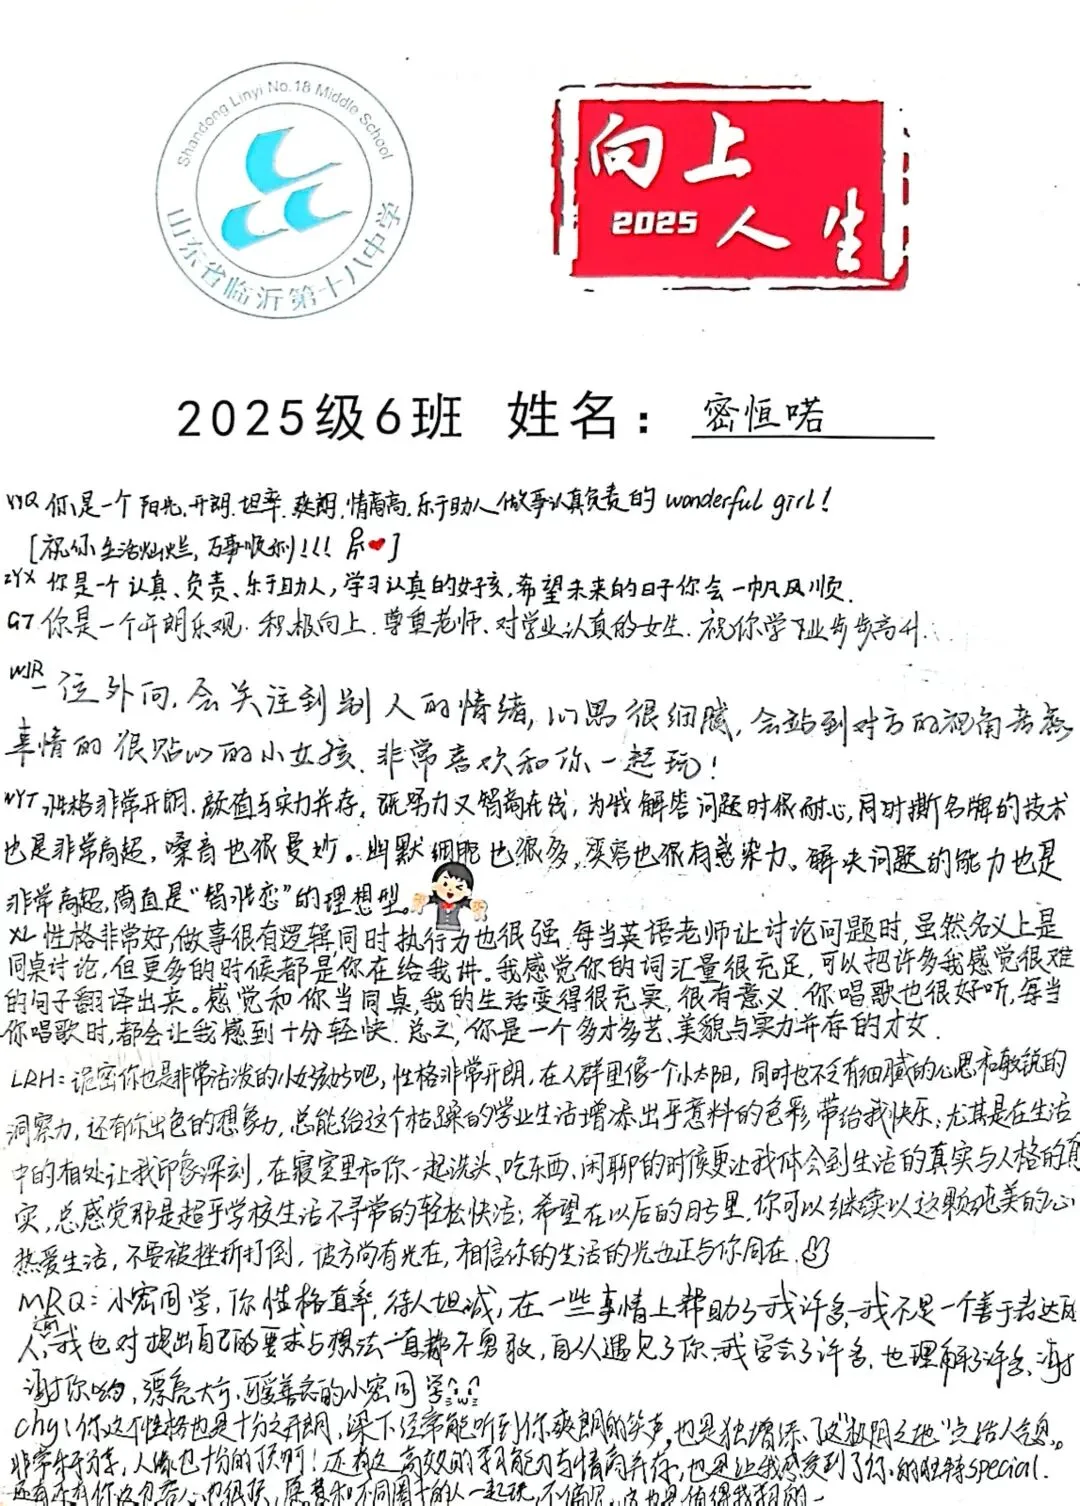 Shandong Linyi No.18 Middle School
山东省临沂第十八中学
向上
2025 人生
2025级6班 姓名：密恒喏
YYQ 你是一个阳光、开朗、坦率、爽朗、情商高、乐于助人做事认真负责的 wonderful girl！
[祝你生活灿烂，万事顺利!!! ]
ZYX 你是一个认真、负责、乐于助人，学习认真的好孩，希望未来的日子你会一帆风顺.
GT 你是一个开朗乐观、积极向上、尊重老师、对学业认真的女生. 祝你学业步步高升.
WJR 一位外向，会关注到别人的情绪，心思很细腻，会站到对方的视角考虑
事情的很贴心的小女孩. 非常喜欢和你一起玩！
WYT 性格非常开朗，颜值与实力并存，既努力又智商在线，为我解答问题时很耐心，同时撕名牌的技术
也是非常高超，嗓音也很曼妙。幽默细胞也很多，笑容也很有感染力。解决问题的能力也是
非常高超，简直是“智性恋”的理想型。
XL 性格非常好，做事很有逻辑同时执行力也很强 每当英语老师让讨论问题时，虽然名义上是
同桌讨论，但更多的时候都是你在给我讲。我感觉你的词汇量很充足，可以把许多我感觉很难
的句子翻译出来。感觉和你当同桌，我的生活变得很充实，很有意义. 你唱歌也很好听，每当
你唱歌时，都会让我感到十分轻快. 总之，你是一个多才多艺、美貌与实力并存的才女.
LRH：诡密你也是非常活泼的小女孩吧，性格非常开朗，在人群里像一个小太阳，同时也不乏有细腻的心思和敏锐的
洞察力，还有你出色的想象力，总能给这个枯躁的学业生活增添出乎意料的色彩，带给我快乐；尤其是在生活
中的相处让我印象深刻，在寝室里和你一起洗头、吃东西、闲聊的时候更让我体会到生活的真实与人格的真
实，总感觉那是超乎学校生活不寻常的轻松快活；希望在以后的日子里，你可以继续以这颗纯美的心
热爱生活，不要被挫折打倒，彼方尚有光在，相信你的生活的光也正与你同在.
MRQ：小宏同学，你性格直率，待人坦诚，在一些事情上帮助了我许多，我不是一个善于表达的
人，我也对提出自己的要求与想法一直都不勇敢，自从遇见了你，我学会了许多，也理解了许多，谢
谢你哟，漂亮大方，可爱善良的小宏同学
chy：你这个性格也是十分之开朗，课下经常能听到你爽朗的笑声，也是独增添了这“极阴之地”
非常乐于分享，人缘也十分的 ！还有这高效的学习能力与情商并存，也是让我感受到了你的独特special.
还有 愿意和不同圈子的人一起玩，不偏